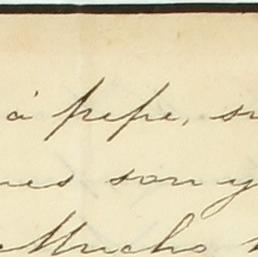 á pepe, su
nes son y
Mucho